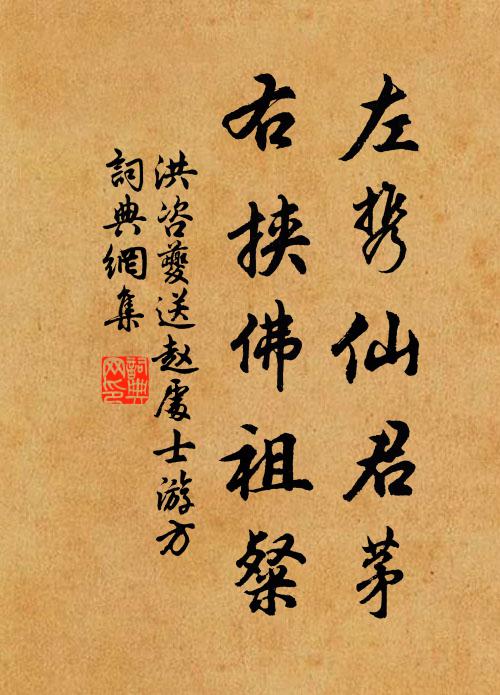 左携仙君茅
右挟佛祖粲
洪咨夔送赵處士游方
詞典網集
詞典
网印